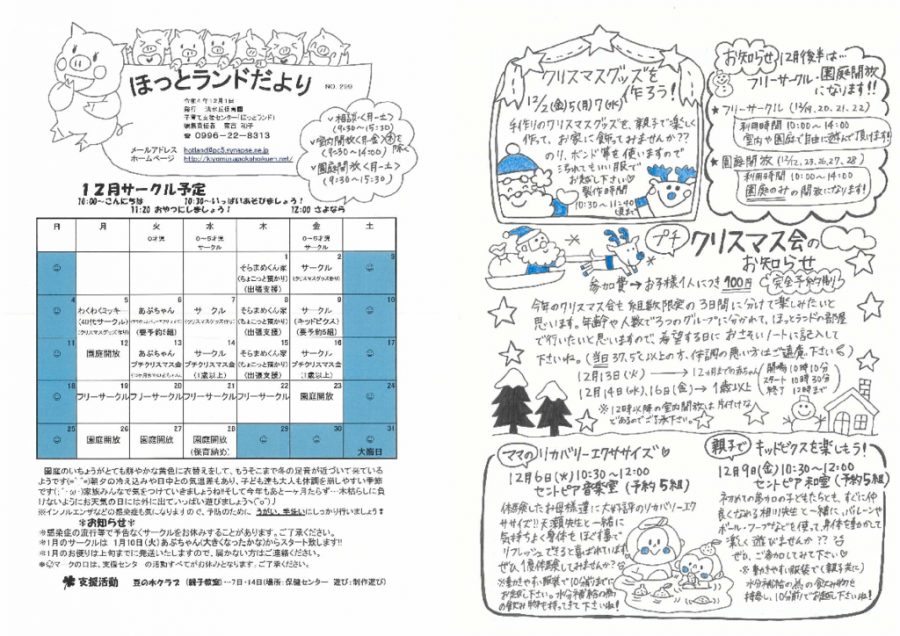 ほっとランドだより
NO.299
令和4年12月1日
発行 清水丘保育園
子育て支援センター(ほっとランド)
☎ 0996-22-8313
メールアドレス hotland@pc5.synapse.ne.jp
ホームページ
♡相談<月~土>
(9:30~15:30)
(9:30~14:00)
♡園庭開放<月~土>
(9:30~15:30)
12月サークル予定
10:00~こんにちは 10:30~いっぱいあそびましょう!
11:20 おやつにしましょう! 12:00 さよなら
日 月 火 水 木 金 土
0才児 0~5才児サークル 0~5才児サークル
1 2 3
そらまめくん家 サークル
(ちょこっと預かり) (クリスマスグッズ作り)
(出張支援)
4 5 6 7 8 9 10
わくわくミッキー あぷちゃん サークル そらまめくん家 サークル
(40代サークル) (クリスマスグッズ作り) (ちょこっと預かり) (キッドビクス)
(クリスマスグッズ作り) (要予約5組) (出張支援) (要予約5組)
11 12 13 14 15 16 17
園庭開放 あぷちゃん サークル そらまめくん家 サークル
プチクリスマス会 プチクリスマス会 (ちょこっと預かり) プチクリスマス会
(1歳以上) (出張支援) (1歳以上)
18 19 20 21 22 23 24
フリーサークル フリーサークル フリーサークル フリーサークル 園庭開放
25 26 27 28 29 30 31
園庭開放 園庭開放 園庭開放 大晦日
(保育納め)
園庭のいちょうがとても鮮やかな黄色に衣替えをして、もうそこまで冬の足音が近づいて来ている
ようです(=^^=)朝夕の冷え込みや日中との気温差もあり、子ども達も大人も体調を崩しやすい季節
です(;´・ω・)家族みんなで気をつけていきましょうね!!そして今年もあと一ヶ月たらず…木枯らしに負
けないようにお天気の日には外に出ていっぱい遊びましょうヘ(^o^)丿
※インフルエンザなどの感染症も気になりますので、予防のために、うがい、手洗いにしっかり行いましょう❣
*お知らせ*
*感染症の流行等で予告なくサークルをお休みすることがあります。ご了承ください。
*1月のサークルは 1月10日(火)あぷちゃん(大きくなったかな)からスタート致します!!
*1月のお便りは上旬までに発送いたしますので、届かない方はご連絡ください。
*☺マークの日は、支援センターの活動すべてがお休みとなります。ご了承ください。
支援活動 豆の木クラブ(親子教室)…7日・14日(場所:保健センター 遊び:制作遊び)
クリスマスグッズを
作ろう!
12/2(金)5(月)7(水)
手作りのクリスマスグッズを、親子で楽しく
作って、お家に飾ってみませんか??
のり、ボンド等を使いますので
汚れてもいい服で
お越し下さい♡
製作時間
10:30~11:40
頃まで
お知らせ 12月後半は…
フリーサークル・園庭開放
になります!!
★フリーサークル(12/19.20.21.22)
利用時間 10:00~14:00
室内や園庭で自由に遊んで頂けます!
★園庭開放(12/12.23.26.27.28)
利用時間 10:00~14:00
園庭のみの開放になります!
プチ クリスマス会の
お知らせ
参加費→お子様1人につき100円 完全予約制
今年のクリスマス会も、組数限定の3日間に分けて楽しみたいと
思います。年齢や人数で3つのグループに分かれて、ほっとランドの部屋
で行いたいと思いますので、希望する日におこそいノートに記入して
下さいね。(当日37.5℃以上の方、体調の悪い方はご遠慮下さい)
12月13日(火)→12ヶ月までの赤ちゃん
12月14日(水)、16日(金)→1歳以上
開場 10時10分
スタート 10時30分
終了 12時まで
※12時以降の室内開放は片付けな
どであるのでご了承下さい。
ママのリカバリーエクササイズ♡
12月6日(火)10:30~12:00
セントピア音楽室(予約5組)
体験したお母様達に大好評のリカバリーエク
ササイズ!!天瀬先生と一緒に
気持ちよく身体をほぐす事で
リフレッシュできると喜ばれています。
ぜひ、1度体験してみませんか??
※動きやすい服装で10分前までに
お越し下さい。水分補給の為
の飲み物も持ってきて下さいね!
親子で キッドビクスを楽しもう!
12月9日(金)10:30~12:00
セントピア和室(予約5組)
ネンネの赤ちゃんの子どもたちとも、すぐに仲
良くなれる相川先生と一緒に、バルーンや
ボール・フープなどを使って、身体を動かして
楽しく遊びませんか??
ぜひ、ご参加してみて下さい♡
※動きやすい服装で(親子共に)
水分補給の為の飲み物を
持参し、10分前でお越し下さいね!